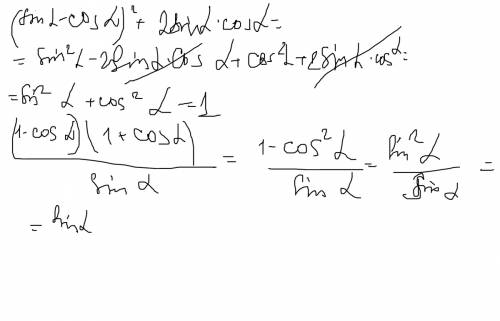 (sin α - cos α)² + 2sin α · cos α =
= sin² α - 2sin α cos α + cos² α + 2sin α · cos α =
= sin² α + cos² α = 1
(1 - cos α)(1 + cos α) / sin α = 1 - cos² α / sin α = sin² α / sin α =
= sin α